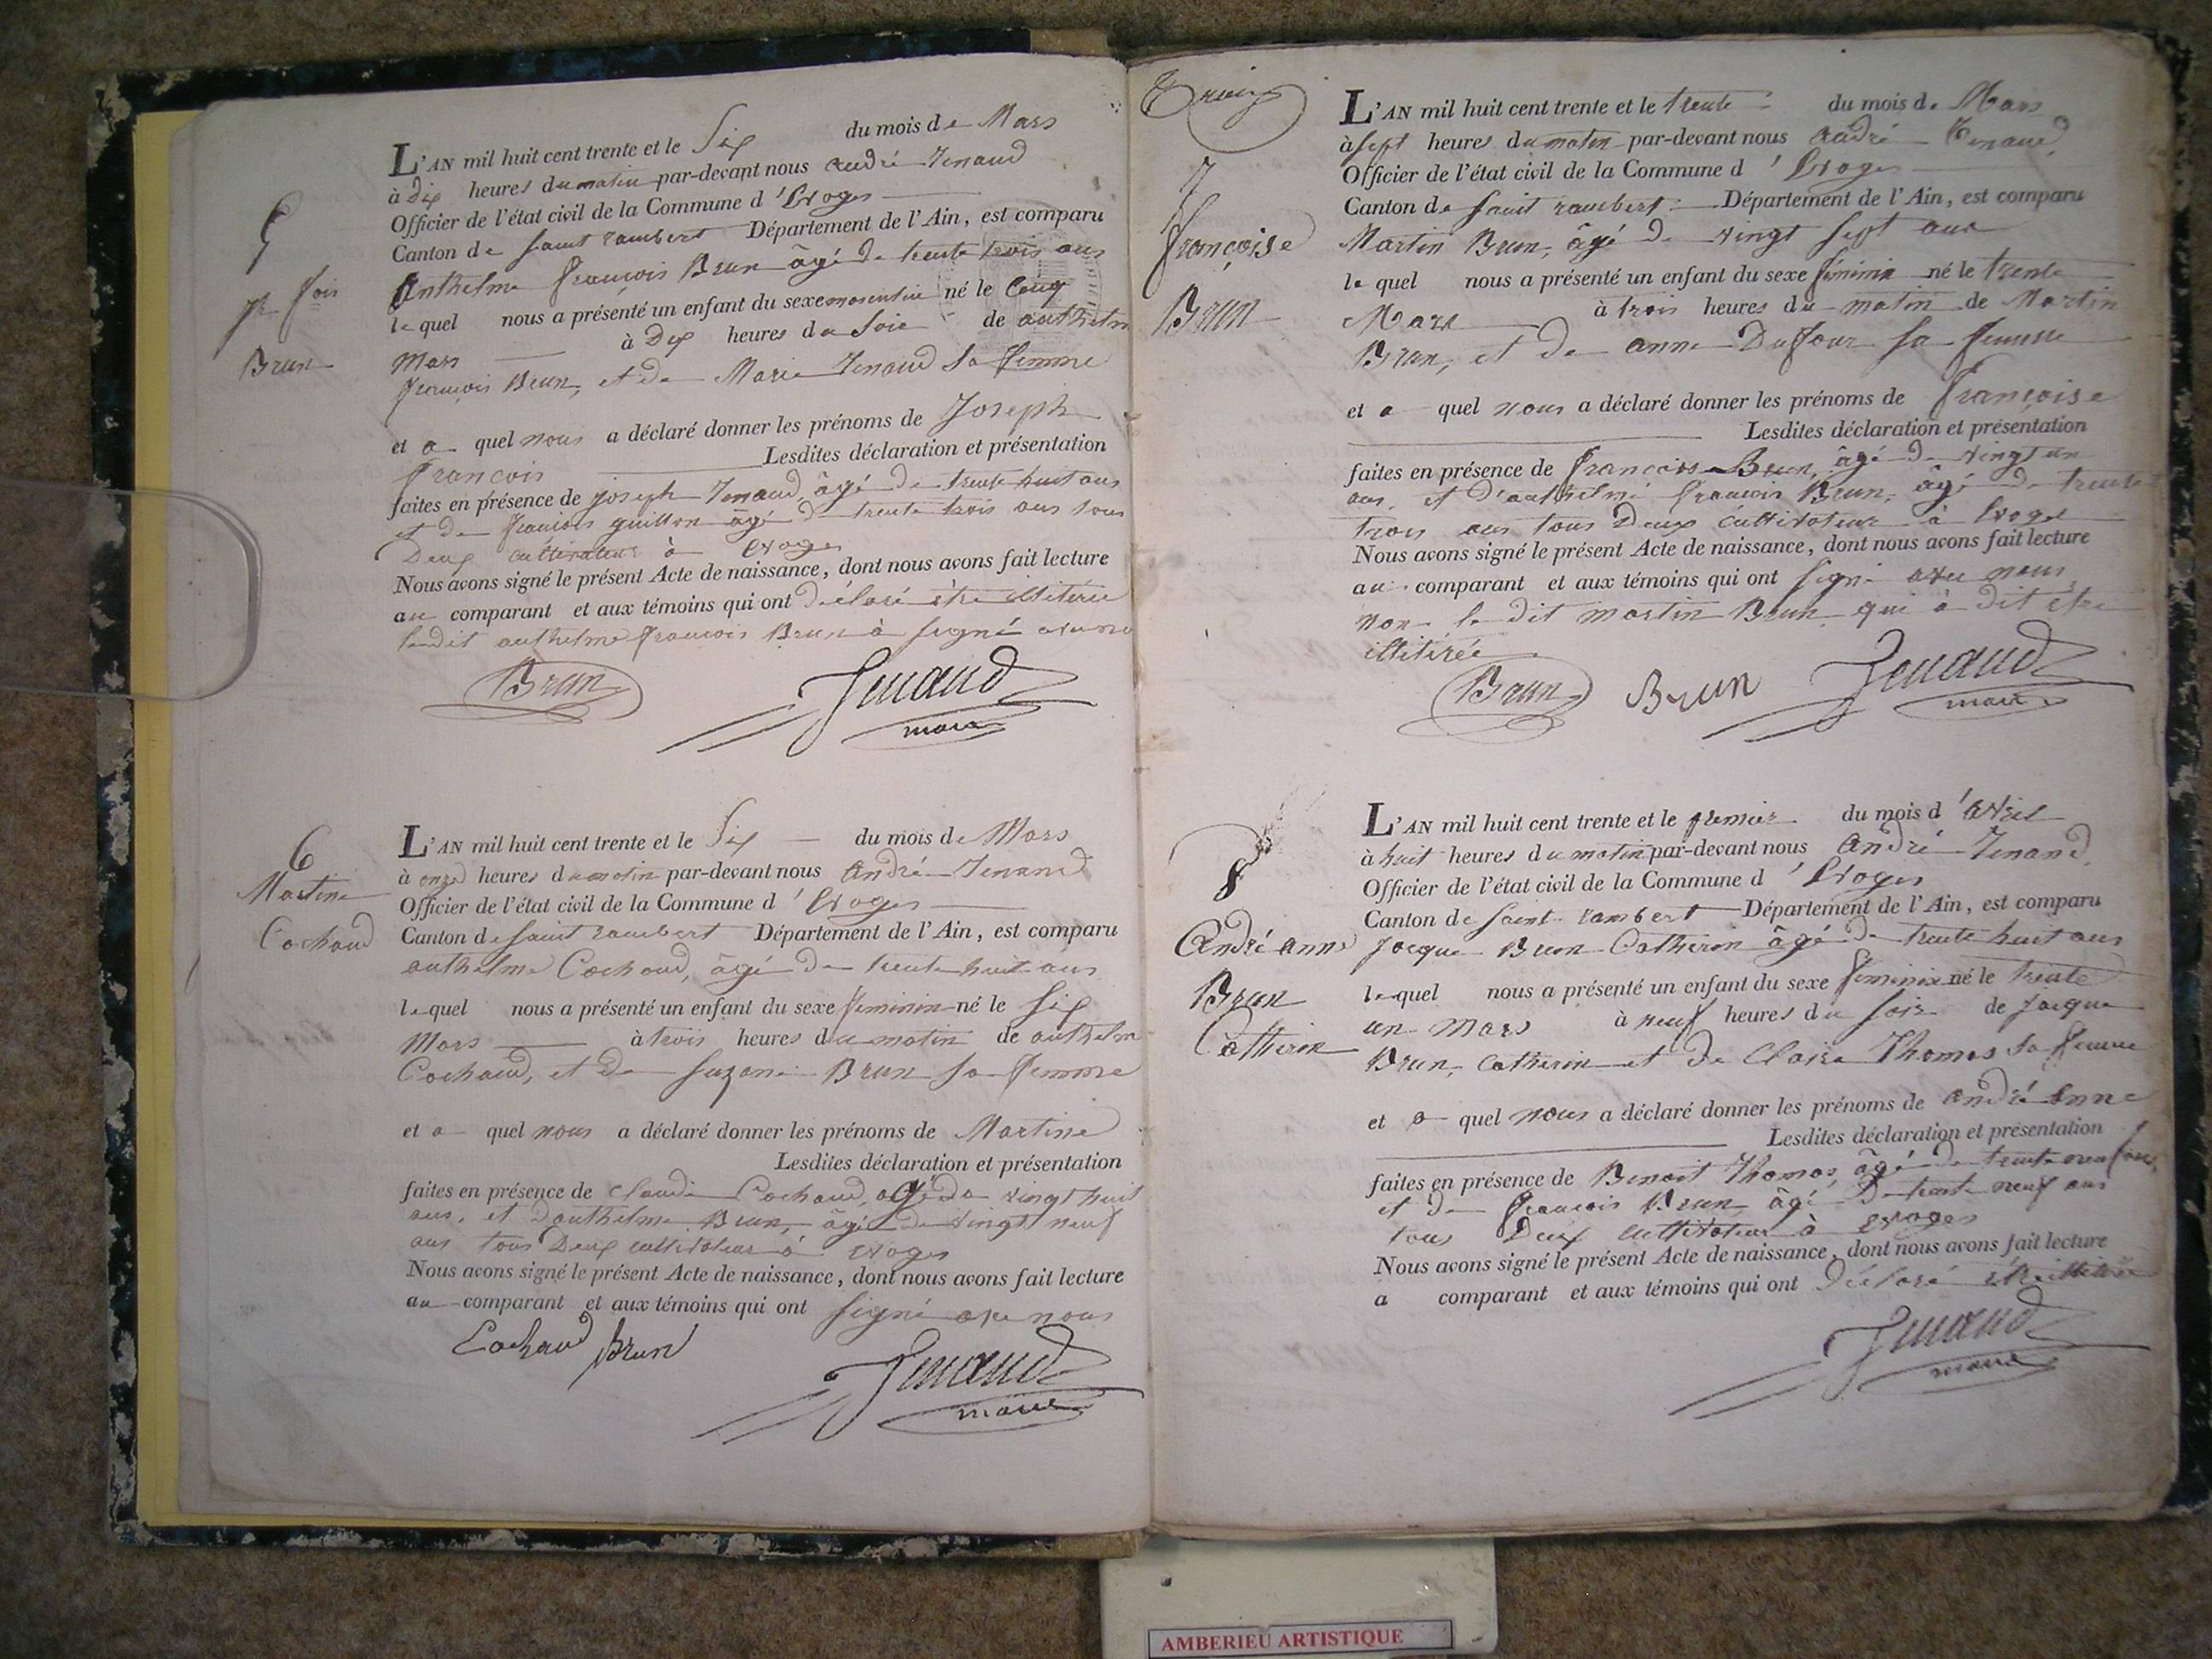 5
jph fois
Brun
L'AN mil huit cent trente et le Six du mois de Mars
à dix heures du matin par-devant nous andré Tenand
Officier de l'état civil de la Commune d'Evoges
Canton de saint rambert Département de l'Ain, est comparu
Anthelme françois Brun âgé de trente trois ans
lequel nous a présenté un enfant du sexe masculin né le Cinq
Mars à Dix heures du Soir de anthelm
françois Brun, et de Marie Tenand Sa femme
et a quel nous a déclaré donner les prénoms de Joseph
francois Lesdites déclaration et présentation
faites en présence de joseph Tenand, âgé de trente huit ans
et de françois guillon âgé de trente trois ans tous
Deux cultivateur à Evoges
Nous avons signé le présent Acte de naissance, dont nous avons fait lecture
au comparant et aux témoins qui ont déclaré être illitéré
ledit anthelme françois Brun à signé
Brun Tenand
maire
6
Martine
Cochaud
L'AN mil huit cent trente et le Six du mois de Mars
à onze heures du matin par-devant nous André Tenand
Officier de l'état civil de la Commune d'Evoges
Canton de saint rambert Département de l'Ain, est comparu
anthelme Cochaud, âgé de trente huit ans
lequel nous a présenté un enfant du sexe feminin né le Six
Mars à trois heures du matin de anthelm
Cochaud, et de Suzane Brun Sa femme
et a quel nous a déclaré donner les prénoms de Martine
Lesdites déclaration et présentation
faites en présence de Claude Cochaud, agé de vingt huit
ans, et d'anthelme Brun, âgé de vingt neuf
ans tous Deux cultivateur à Evoges
Nous avons signé le présent Acte de naissance, dont nous avons fait lecture
au comparant et aux témoins qui ont signé ave nous
Cochaud Brun Tenand
maire
7
françoise
Brun
L'AN mil huit cent trente et le trente du mois de Mars
à sept heures du matin par-devant nous andré Tenand
Officier de l'état civil de la Commune d'Evoges
Canton de saint rambert Département de l'Ain, est comparu
Martin Brun, âgé de vingt sept ans
lequel nous a présenté un enfant du sexe féminin né le trente
Mars à trois heures du matin de Martin
Brun, et de anne Dufour sa femme
et a quel nous a déclaré donner les prénoms de Françoise
Lesdites déclaration et présentation
faites en présence de françois Brun, âgé de vingt un
ans, et d'anthelme françois Brun, âgé de trente
trois ans tous Deux Cultivateur à Evoges
Nous avons signé le présent Acte de naissance, dont nous avons fait lecture
au comparant et aux témoins qui ont signé avec nous
non le dit martin Brun qui à dit être
illitérée
Brun Brun Tenand
maire
8
André anne
Brun
Catherin
L'AN mil huit cent trente et le premier du mois d'avril
à huit heures du matin par-devant nous André Tenand
Officier de l'état civil de la Commune d'Evoges
Canton de saint rambert Département de l'Ain, est comparu
Jacque Brun Catherin âgé de trente huit ans
lequel nous a présenté un enfant du sexe feminin né le trente
un Mars à neuf heures du soir de Jacque
Brun, Catherin et de Claire Thomas Sa femme
et a quel nous a déclaré donner les prénoms de André anne
Lesdites déclaration et présentation
faites en présence de Benoit Thomas, âgé de trente neuf ans,
et de françois Brun âgé De trente neuf ans
tous Deux cultivateur à Evoges
Nous avons signé le présent Acte de naissance, dont nous avons fait lecture
a comparant et aux témoins qui ont Déclaré
Tenand
maire
AMBERIEU ARTISTIQUE